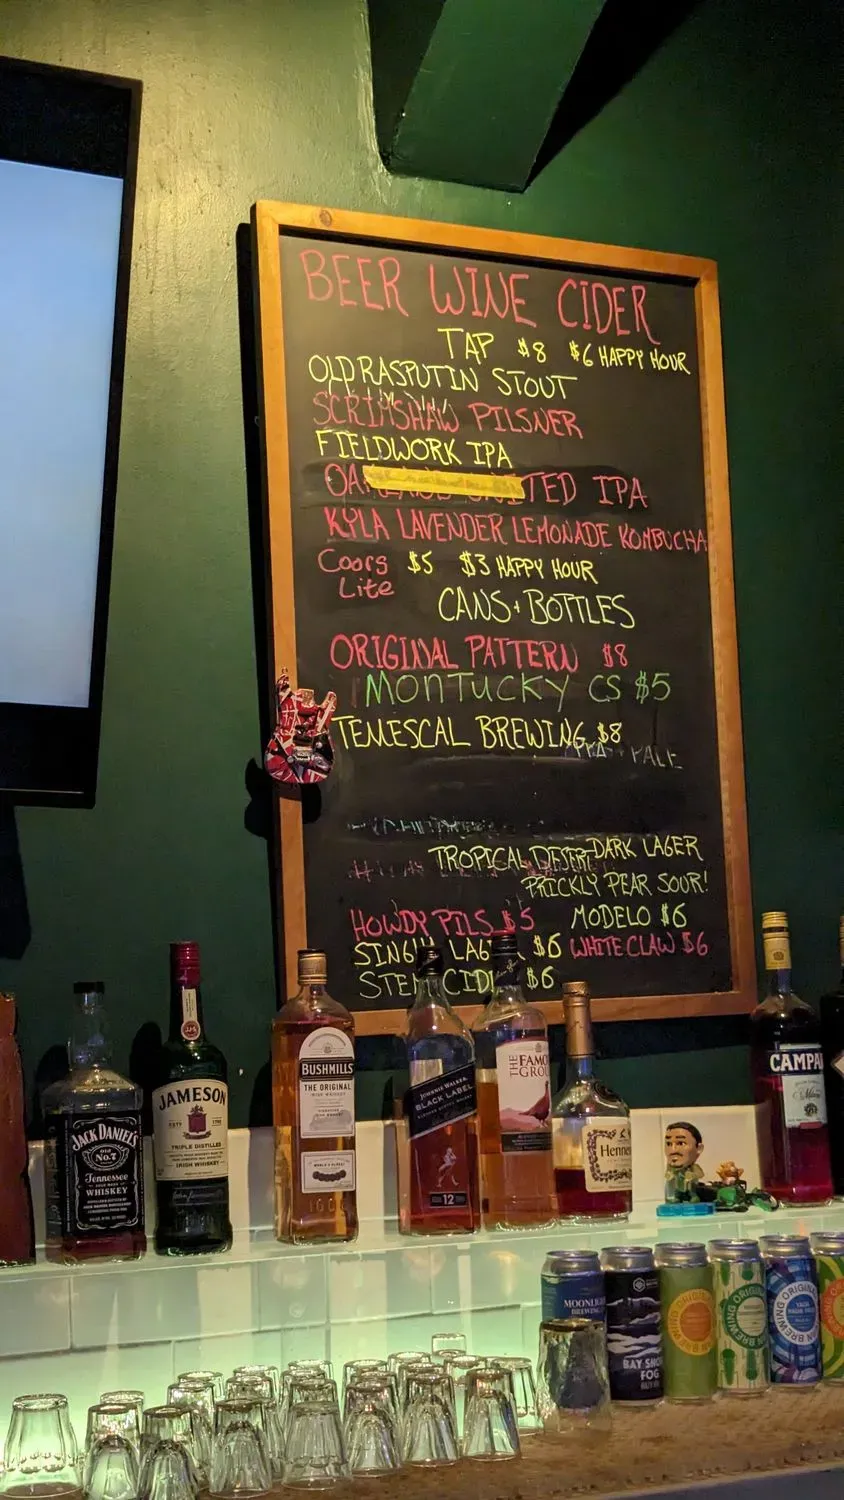 BEER WINE CIDER
TAP $8 $6 HAPPY HOUR
OLD RASPUTIN STOUT
SCRIMSHAW PILSNER
FIELDWORK IPA
IPA
KYLA LAVENDER LEMONADE KOMBUCHA
Coors Lite $5 $3 HAPPY HOUR
CANS + BOTTLES
ORIGINAL PATTERN $8
MONTUCKY CS $5
TEMESCAL BREWING $8
PALE
TROPICAL DARK LAGER
PRICKLY PEAR SOUR!
HOWDY PILS $5 MODELO $6
$6 WHITE CLAW $6
$6
JACK DANIEL'S
OLD
No.7
Tennessee
WHISKEY
JAMESON
TRIPLE DISTILLED
IRISH WHISKEY
BUSHMILLS
THE ORIGINAL
JOHNNIE WALKER
BLACK LABEL
12
THE FAMO
GROU
Henne
CAMPA
BAY
FOG
ORIGINAL
BREWING